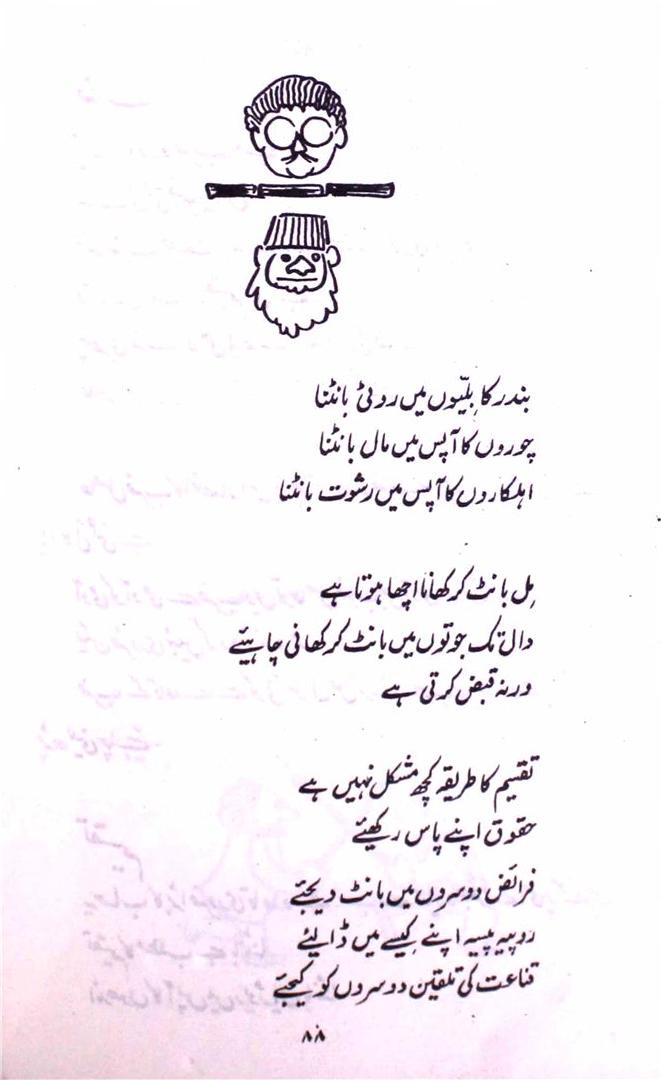 بندر کا بلّیوں میں روٹی بانٹنا
چوروں کا آپس میں مال بانٹنا
اہلکاروں کا آپس میں رشوت بانٹنا
مِل بانٹ کر کھانا اچھا ہوتا ہے
دال تک جوتوں میں بانٹ کر کھانی چاہیئے
ورنہ قبض کرتی ہے
تقسیم کا طریقہ کچھ مشکل نہیں ہے
حقوق اپنے پاس رکھیئے
فرائض دوسروں میں بانٹ دیجئے
روپیہ پیسہ اپنے کیسے میں ڈالیئے
قناعت کی تلقین دوسروں کو کیجئے
۸۸